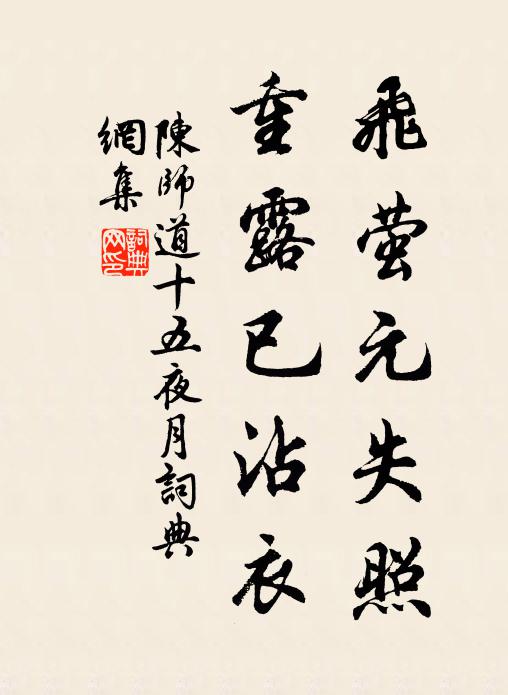 飛萤元失照
重露已沾衣
陳師道十五夜月詞典
網集
詞典
网印